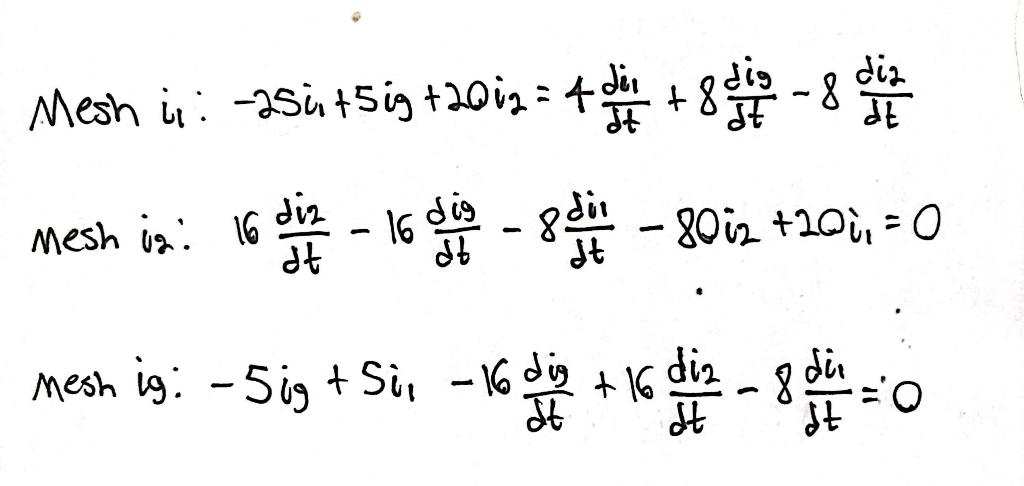 Mesh i₁: -25i₁+5ig+20i₂ = 4 di₁/dt + 8 dig/dt - 8 di₂/dt
Mesh i₂: 16 di₂/dt - 16 dig/dt - 8 di₁/dt - 80i₂ +20i₁ = 0
Mesh ig: -5ig + 5i₁ -16 dig/dt + 16 di₂/dt - 8 di₁/dt = 0